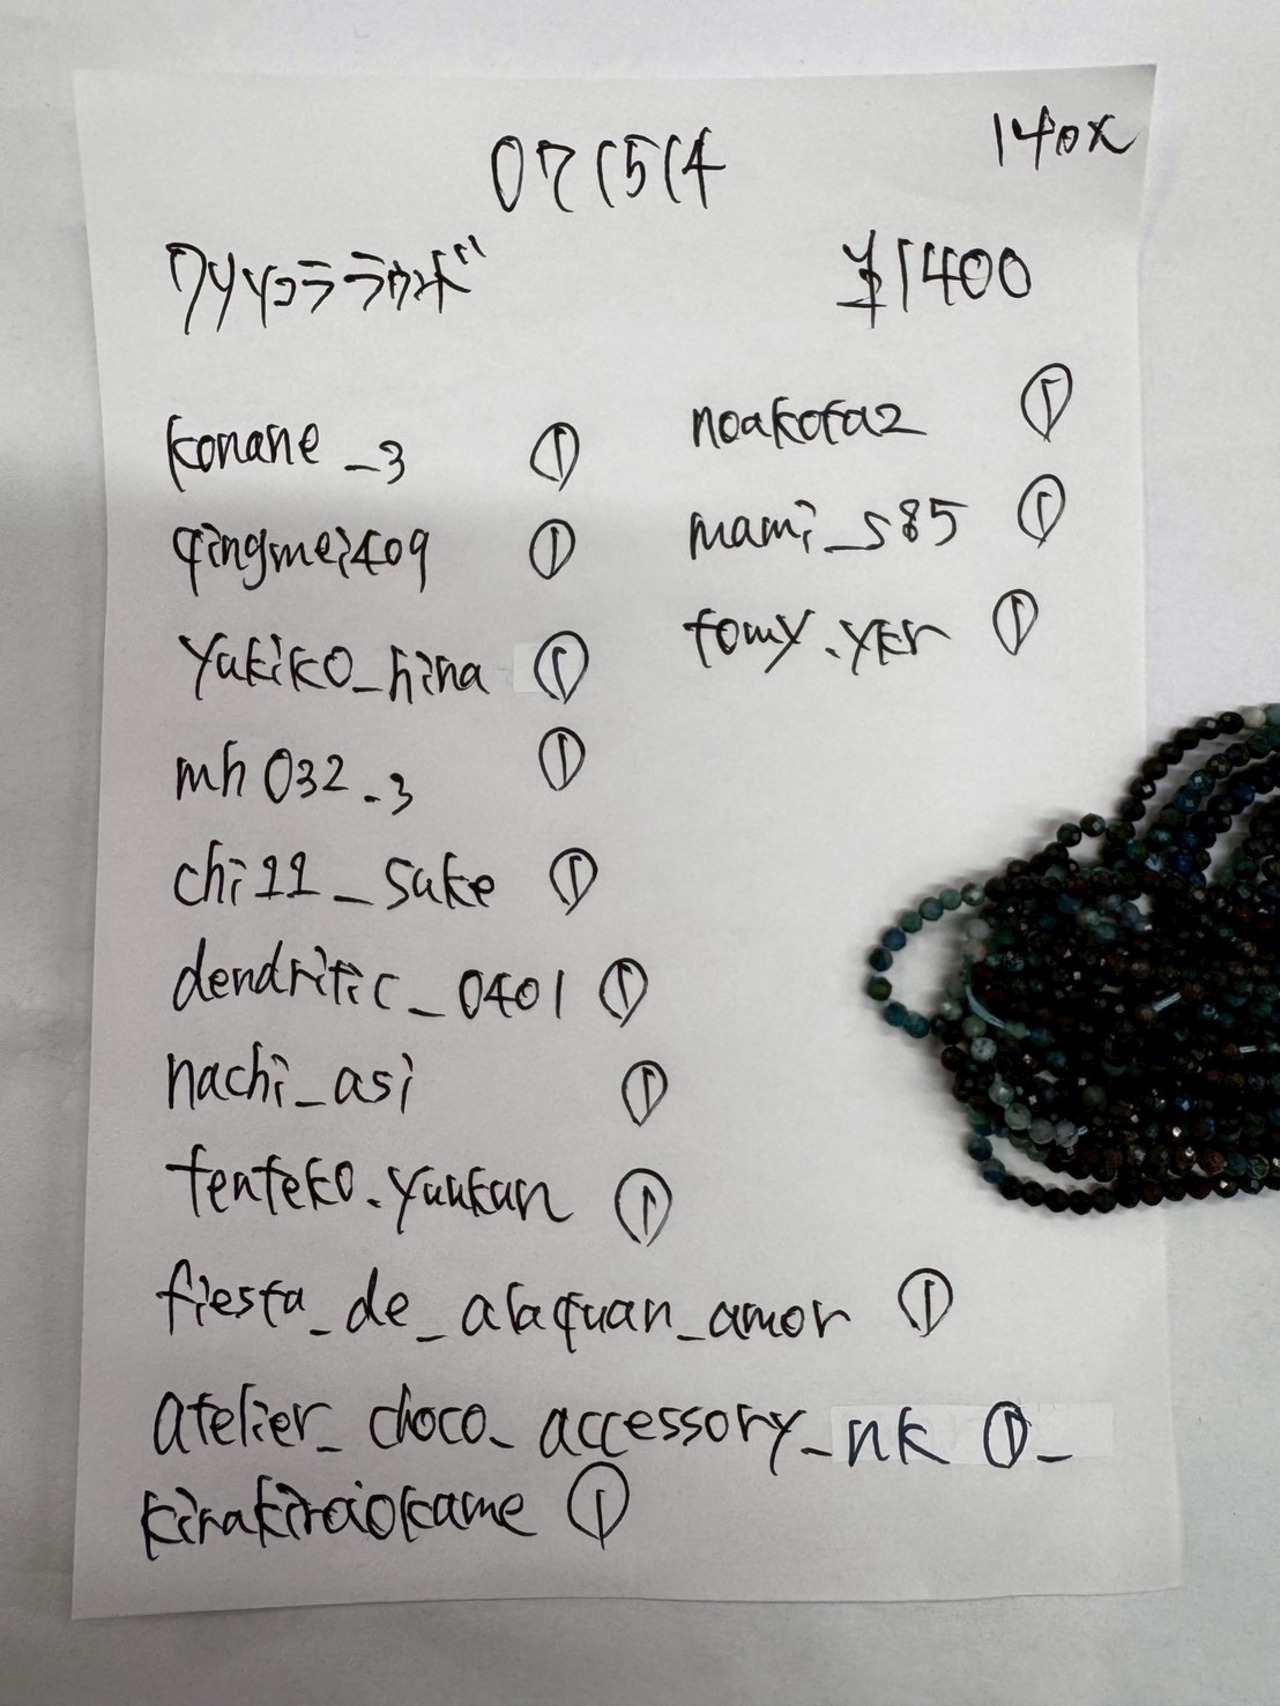 071514
140x
クリソコララウンド
¥1400
konane_3 ①
qingmei409 ①
yukiko_hina ①
mh032_3 ①
chi11_sake ①
dendritic_0401 ①
nachi_asi ①
tenteko.yuukan ①
fiesta_de_alaquan_amor ①
atelier_choco_accessory_nk ①_
kirakiraiokame ①
noakota2 ①
mami_s85 ①
tomy.ykr ①